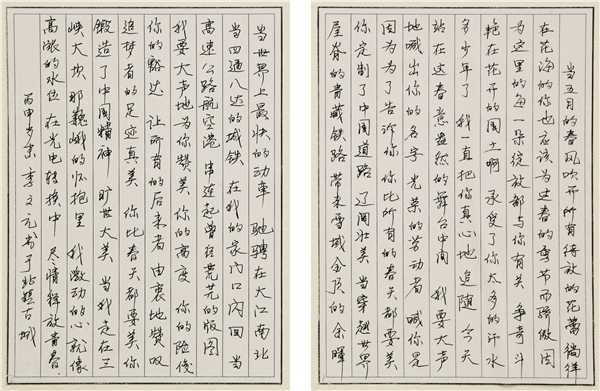 当五月的春风吹开所有待放的花蕾 徜徉
在花海的你也应该为这春的季节而骄傲 因
为这里的每一朵绽放都与你有关 争奇斗
艳在花开的国土啊 承受了你太多的汗水
多少年了 我一直把你真心地追随 今天
站在这春意盎然的舞台中间 我要大声
地喊出你的名字 光荣的劳动者 喊你是
因为为了告诉你 你比所有的春天都要美
你定制了中国道路 辽阔壮美 当穿越世界
屋脊的青藏铁路 带来雪域金顶的余晖
当世界上最快的动车 驰骋在大江南北
当四通八达的城铁 在我的家门口闪回 当
高速公路航空港 串连起曾经荒芜的版图
我要大声地为你赞美 你的高度 你的险峻
你的豁达 让所有的后来者 由衷地赞叹
追梦者的足迹真美 你比春天都要美 你
锻造了中国精神 旷世大美 当我走在三
峡大坝那巍峨的怀抱里 我激动的心就像
高涨的水位 在光电转换中 尽情释放青春
丙申岁末 李文元书于北魏古城